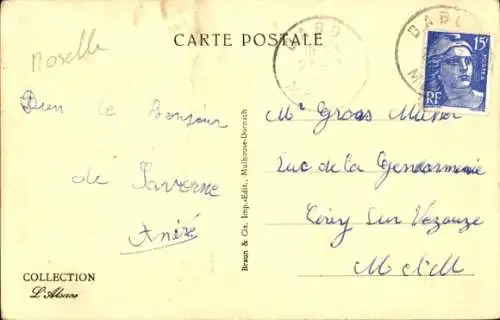 Moselle
CARTE POSTALE
DABO
DABO
15F
POSTES
RF
Bien le bonjour
de Saverne
André
Mr Gross
Rue de la Gendarmerie
Cirey Sur Vezouze
M et M
Braun & Cie, Imp.-Edit., Mulhouse-Dornach
COLLECTION
L'Alsace